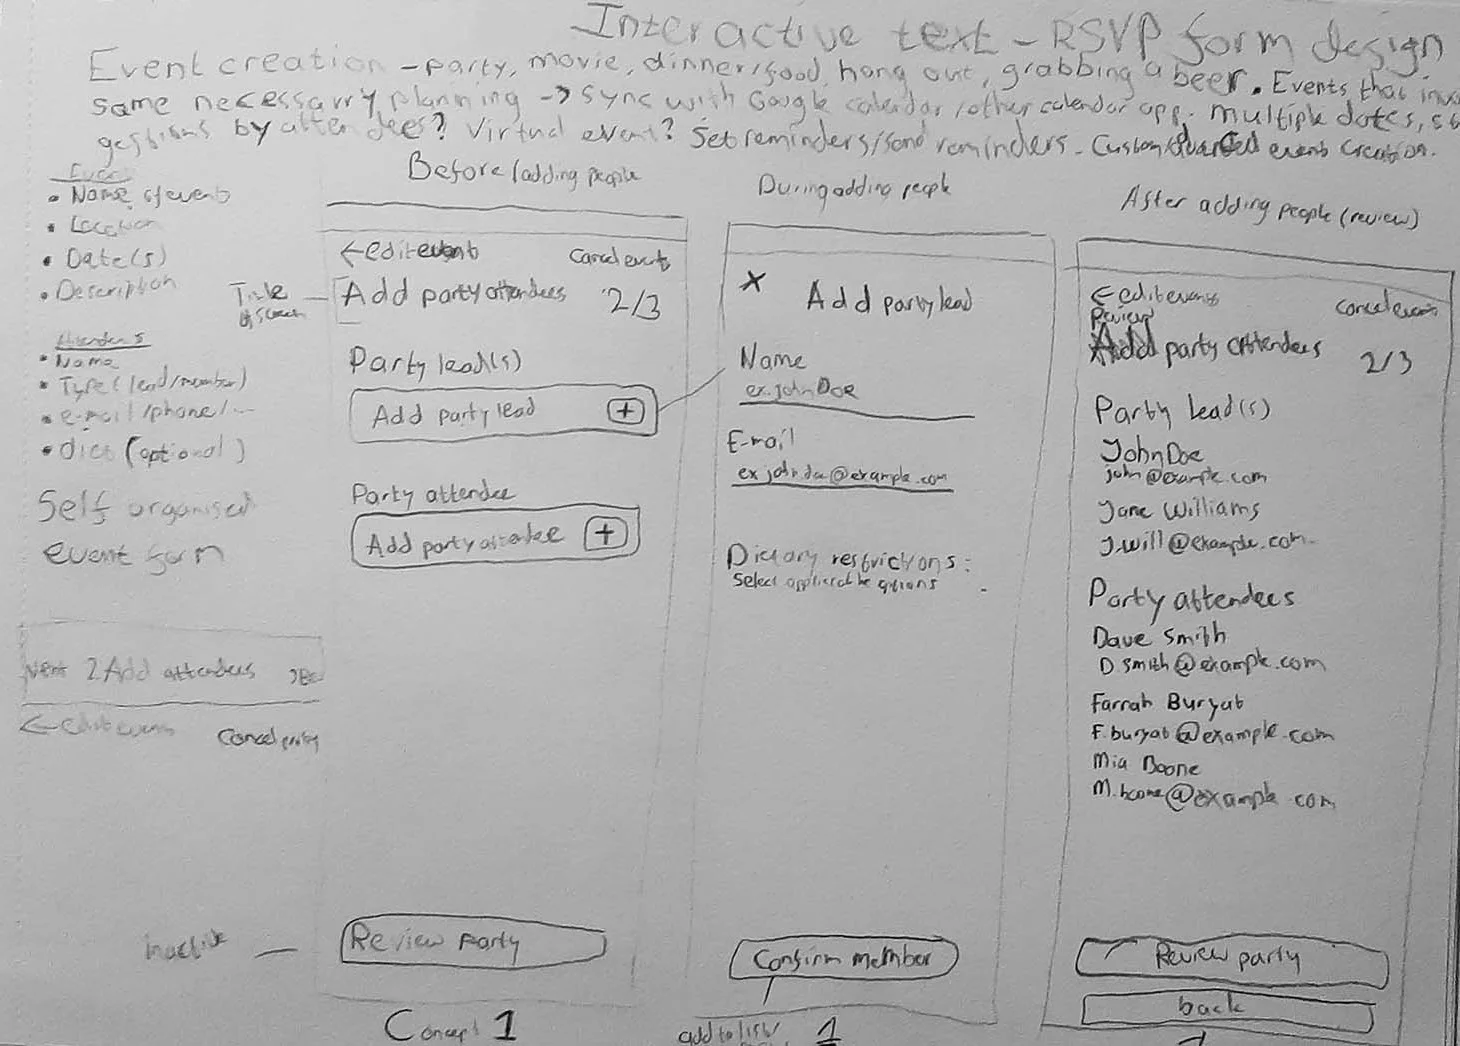 Interactive text - RSVP form design
Event creation - party, movie, dinner/food, hang out, grabbing a beer. Events that
some necessarry planning -> sync with Google calendar/other calendar app. Multiple dates,
by attendees? Virtual event? Set reminders/send reminders. event creation.
Event
• Name of event
• Location
• Date(s)
• Description
Attendees
• Name
• Type (lead/member)
• e-mail/phone/...
• diet (optional)
Self organised
event form
2 Add attendees
← edit event
Cancel party
Title
of screen
inactive
Before adding people
← edit event Cancel event
Add party attendees 2/3
Party lead(s)
Add party lead +
Party attendee
Add party attendee +
Review party
Concept 1
During adding people
X Add party lead
Name
ex. John Doe
E-mail
ex john.doe@example.com
Dietary restrictions:
Select applicable options
Confirm member
add to list/
1
After adding people (review)
← edit event Cancel event
Review
Add party attendees 2/3
Party lead(s)
John Doe
john@example.com
Jane Williams
J.will@example.com
Party attendees
Dave Smith
D smith@example.com
Farrah Buryat
F.buryat@example.com
Mia Boone
M.boone@example.com
Review party
back